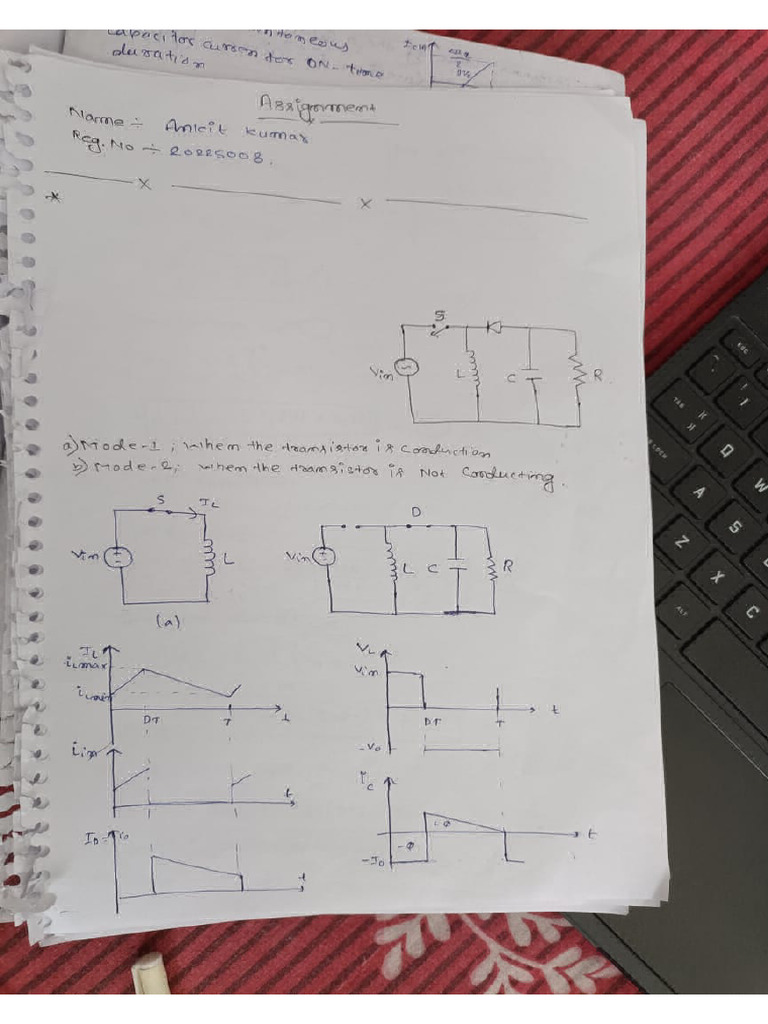 capacitor current for ON-time
duration
Assignment
Name ÷ Ankit Kumar
Reg. No ÷ 20225008.
X X
*
S
Vin L C R
a) Mode-1; When the transistor is Conduction
b) Mode-2; When the transistor is Not Conducting.
S IL D
Vin L Vin L C R
(a)
IL VL
iLmax Vin
iLmin
DT T t DT T t
-Vo
iin ic
t t
-Io
ID
t